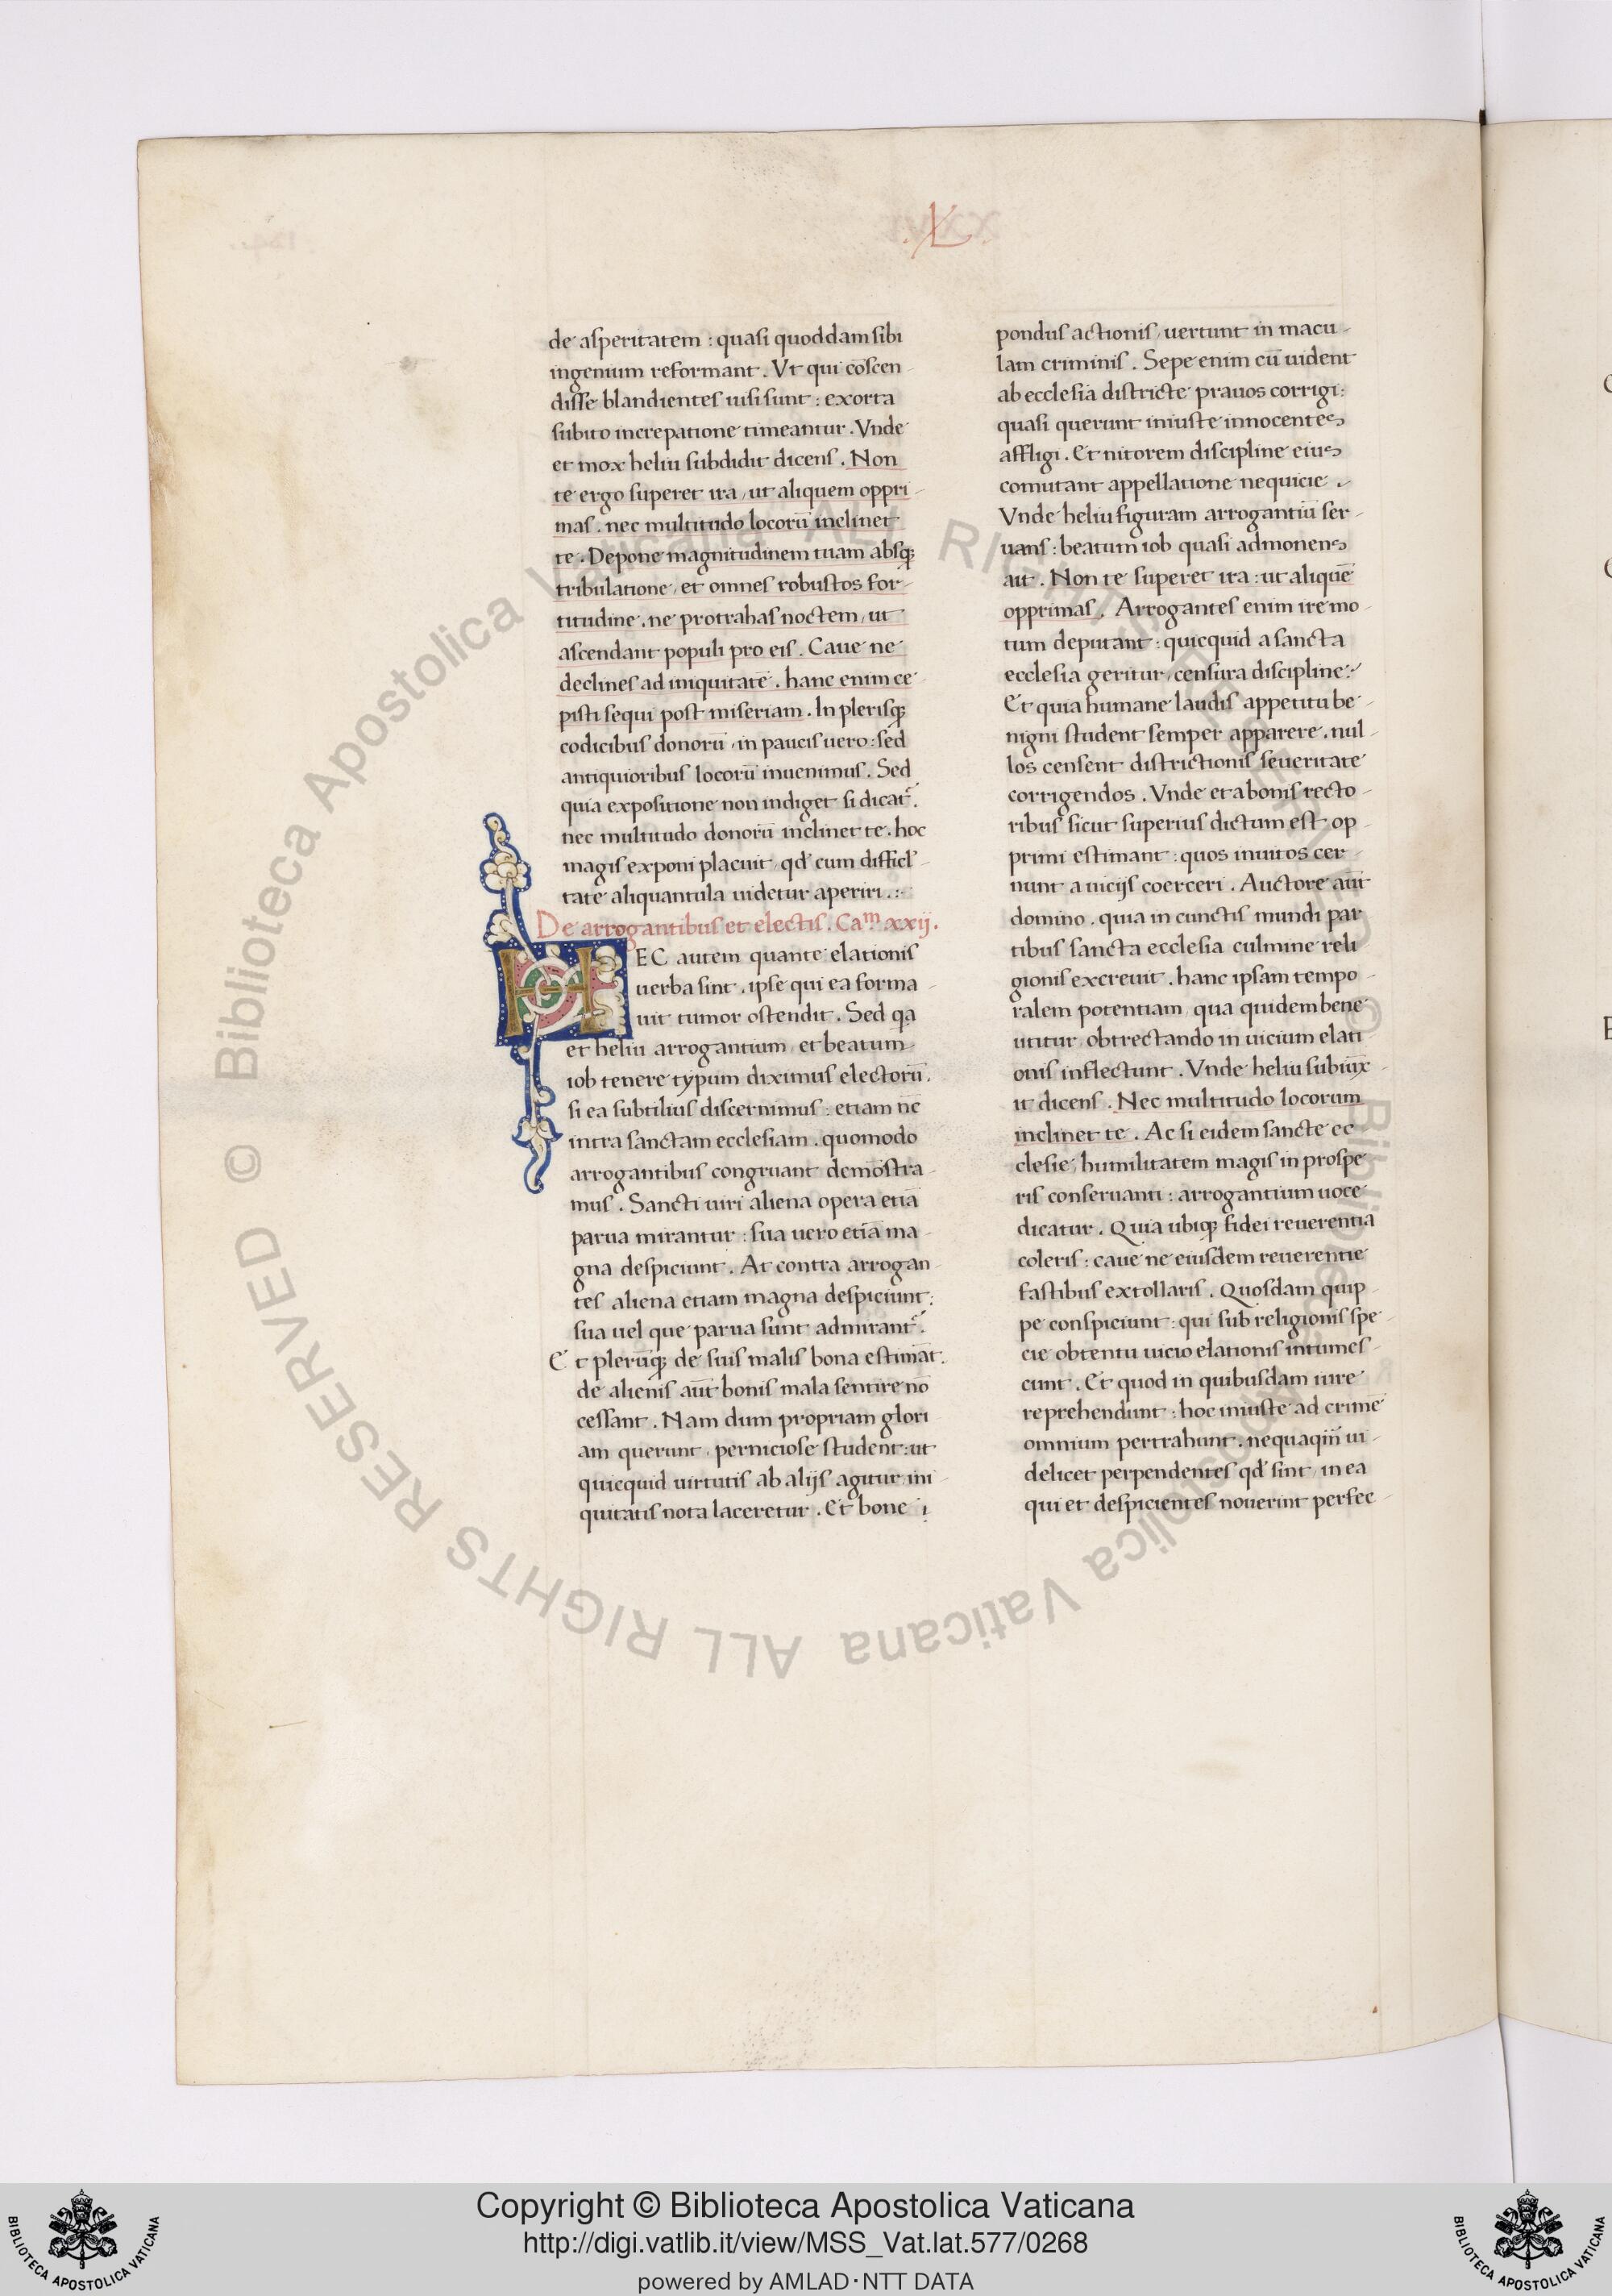 .L.
de asperitatem : quasi quoddam sibi
ingenium reformant . Vt qui co̅scen-
disse blandientes uisi sunt : exorta
subito increpatione timeantur . Vnde
et mox heliu subdidit dicens . Non
te ergo superet ira , ut aliquem oppri-
mas . nec multitudo locoru̅ inclinet
te . Depone magnitudinem tuam absqꝫ
tribulatione , et omnes robustos for-
titudine . ne protrahas noctem , ut
ascendant populi pro eis . Caue ne
declines ad iniquitate̅ . hanc enim ce
pisti sequi post miseriam . In plerisqꝫ
codicibus donoru̅ , in paucis uero : sed
antiquioribus locoru̅ inuenimus . Sed
quia expositione non indiget si dicat᷑ .
nec multitudo donoru̅ inclinet te . hoc
magis exponi placuit , qd̕ cum difficl̕-
tate aliquantula uidetur aperiri . :-
De arrogantibus et electis . Ca.ᵐ xxij .
HEC autem quante elationis
uerba sint . ipse qui ea forma-
uit tumor ostendit . Sed qa
et heliu arrogantium , et beatum
iob tenere typum diximus electoru̅ .
si ea subtilius discernimus : etiam nc̅
intra sanctam ecclesiam . quomodo
arrogantibus congruant demo̅stra-
mus . Sancti uiri aliena opera etia̅
parua mirantur : sua uero etia̅ ma-
gna despiciunt . At contra arrogan-
tes aliena etiam magna despiciunt :
sua uel que parua sunt admirant᷑ .
Et pleru̅qꝫ de suis malis bona estima̅t .
de alienis au̅t bonis mala sentire no̅
cessant . Nam dum propriam glori
am querunt , perniciose student : ut
quicquid uirtutis ab alijs agitur , ini-
quitatis nota laceretur . Et bone i
pondus actionis , uertunt in macu-
lam criminis . Sepe enim cu̅ uident
ab ecclesia districte prauos corrigi :
quasi querunt iniuste innocentes
affligi . Et nitorem discipline eius
comutant appellatione nequicie .
Vnde heliu figuram arrogantiu̅ ser-
uans : beatum iob quasi admonens
ait . Non te superet ira : ut alique̅
opprimas . Arrogantes enim ire mo-
tum deputant : quicquid a sancta
ecclesia geritur , censura discipline .
Et quia humane laudis appetitu be-
nigni student semper apparere . nul-
los censent districtionis seueritate
corrigendos . Vnde et a bonis recto-
ribus sicut superius dictum est op-
primi estimant : quos inuitos cer-
nunt a uicijs coerceri . Auctore au̅t
domino . quia in cunctis mundi par
tibus sancta ecclesia culmine reli
gionis excreuit . hanc ipsam tempo-
ralem potentiam , qua quidem bene
utitur , obtrectando in uicium elati
onis inflectunt . Vnde heliu subiu̅x-
it dicens . Nec multitudo locorum
inclinet te . Ac si eidem sancte ec
clesie , humilitatem magis in prospe
ris conseruanti : arrogantium uoce
dicatur . Quia ubiqꝫ fidei reuerentia
coleris : caue ne eiusdem reuerentie
fastibus extollaris . Quosdam quip-
pe conspiciunt : qui sub religionis spe-
cie obtentu uicio elationis intumes-
cunt . Et quod in quibusdam iure
reprehendunt : hoc iniuste ad crime̅
omnium pertrahunt . nequaqm̅ ui-
delicet perpendentes qd̕ sint , in ea
qui et despicientes nouerint perfec-
© Biblioteca Apostolica Vaticana ALL RIGHTS RESERVED
© Biblioteca Apostolica Vaticana ALL RIGHTS RESERVED
Copyright © Biblioteca Apostolica Vaticana
http://digi.vatlib.it/view/MSS_Vat.lat.577/0268
powered by AMLAD·NTT DATA
BIBLIOTECA APOSTOLICA VATICANA
BIBLIOTECA APOSTOLICA VATICANA